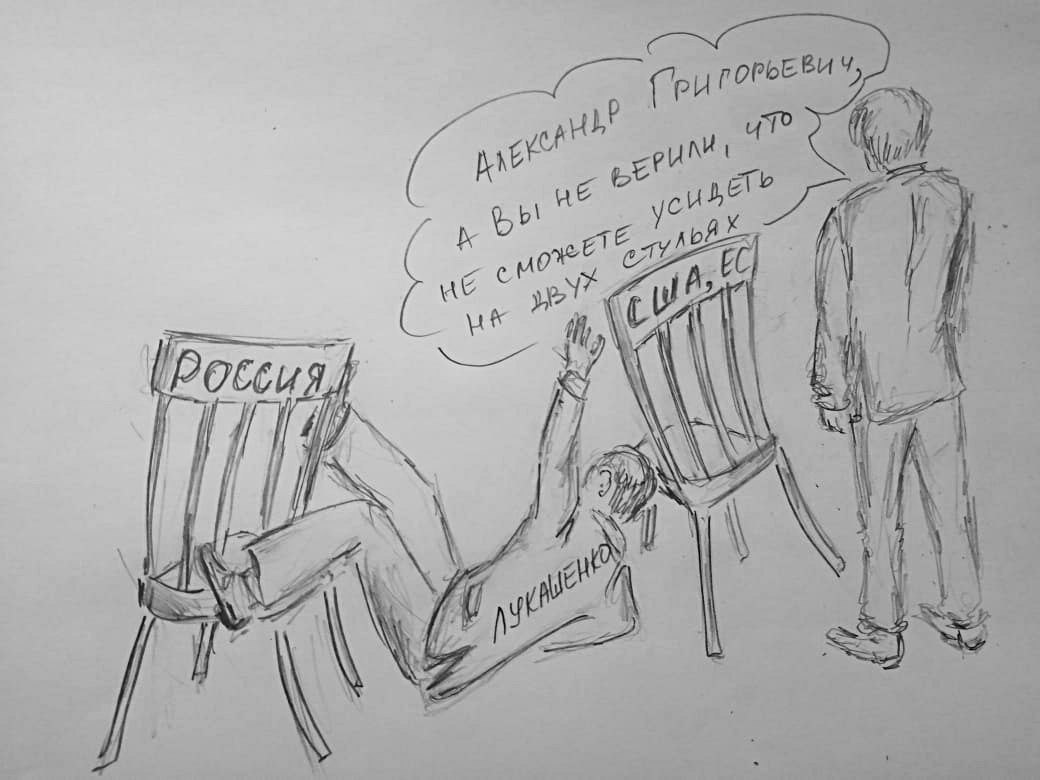 Александр Григорьевич,
а Вы не верили, что
не сможете усидеть
на двух стульях
США, ЕС
РОССИЯ
ЛУКАШЕНКО